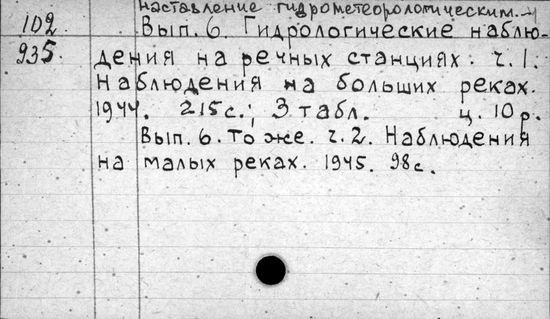 наставление гидрометеорологическим...
102 Вып. 6. Гидрологические наблю-
935. дения на речных станциях. ч. 1.
Наблюдения на больших реках.
1944. 215с.; 3 табл. ц. 10 р.
Вып. 6. То же. ч. 2. Наблюдения
на малых реках. 1945. 98с.